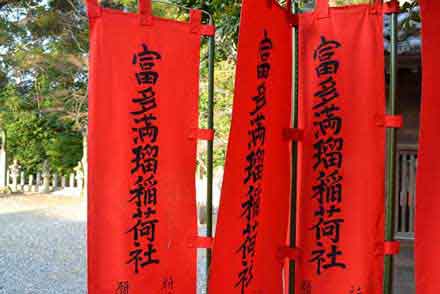 富多満瑠稲荷社
富多満瑠稲荷社
富多満瑠稲荷社